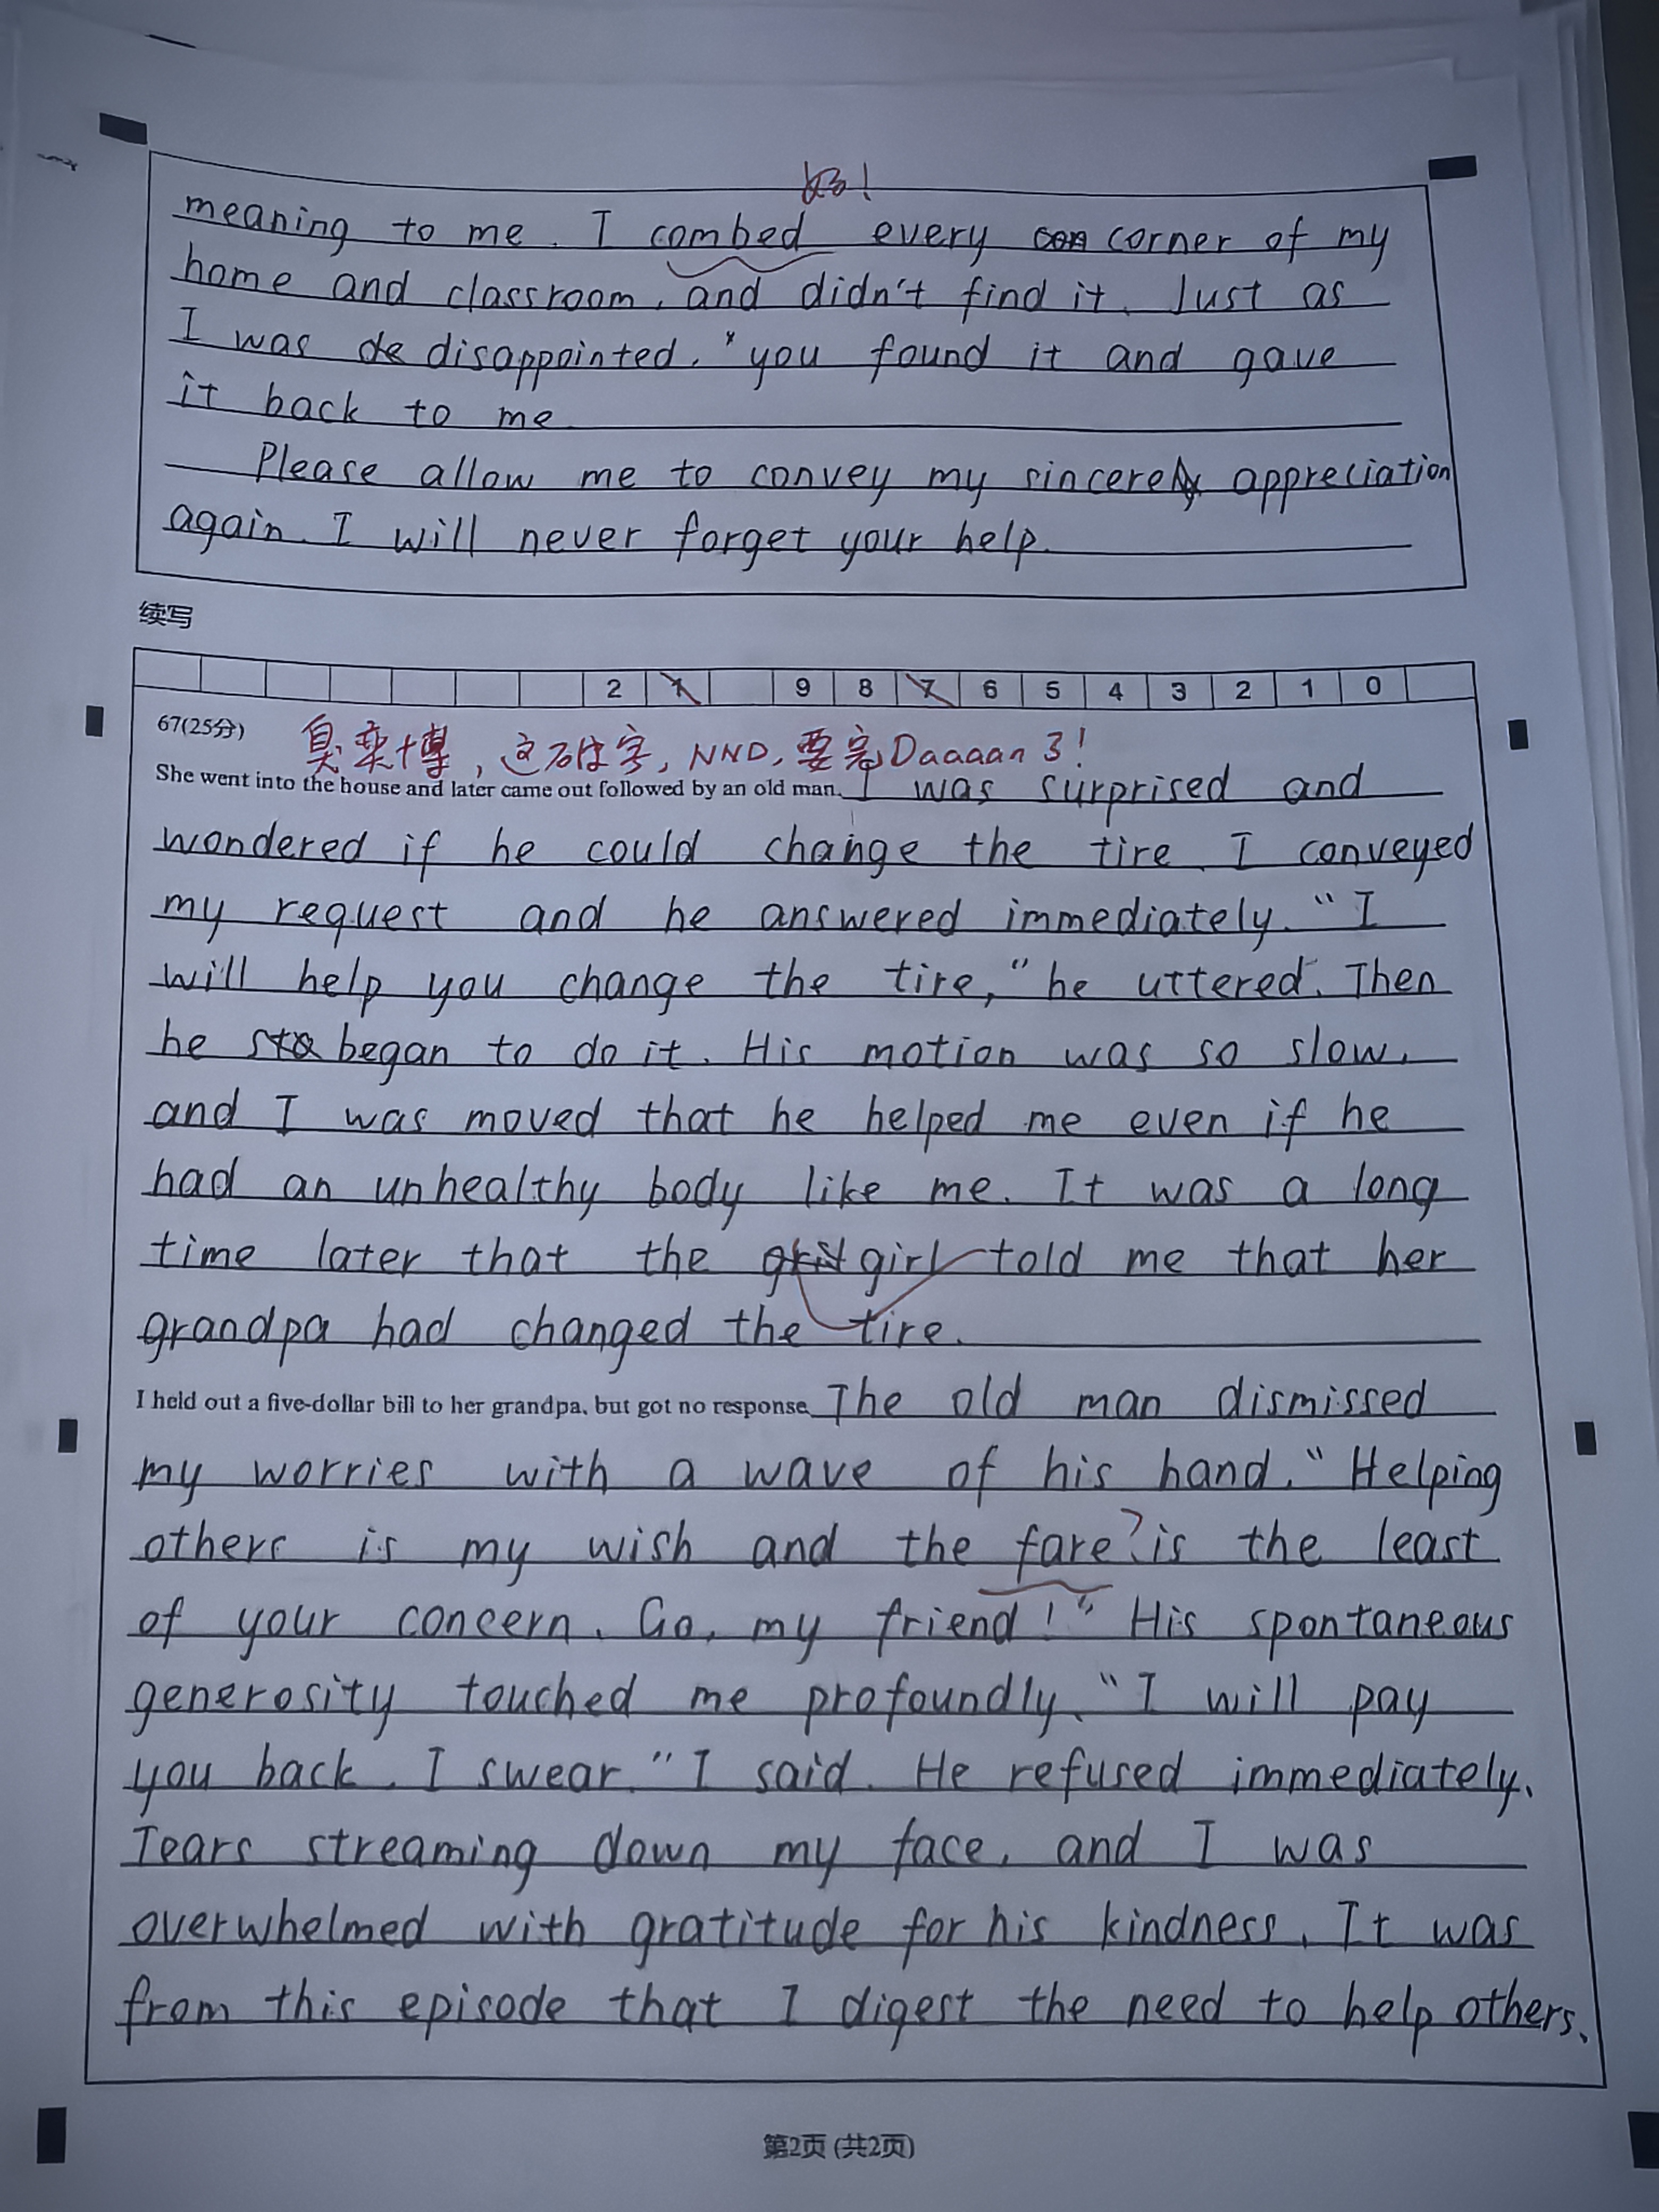 好!
meaning to me. I combed every con corner of my
home and classroom, and didn't find it. Just as
I was de disappointed, you found it and gave
it back to me.
Please allow me to convey my sincerely appreciation
again. I will never forget your help.
续写
2 1 9 8 7 6 5 4 3 2 1 0
67(25分)
奕博,这字,NND,要完Daaaan了!
She went into the house and later came out followed by an old man. I was surprised and
wondered if he could change the tire. I conveyed
my request and he answered immediately. "I
will help you change the tire," he uttered. Then
he sta began to do it. His motion was so slow,
and I was moved that he helped me even if he
had an unhealthy body like me. It was a long
time later that the girl told me that her
grandpa had changed the tire.
I held out a five-dollar bill to her grandpa, but got no response. The old man dismissed
my worries with a wave of his hand. "Helping
others is my wish and the fare ? is the least
of your concern. Go, my friend!" His spontaneous
generosity touched me profoundly. "I will pay
you back. I swear." I said. He refused immediately.
Tears streaming down my face, and I was
overwhelmed with gratitude for his kindness. It was
from this episode that I digest the need to help others.
第2页 (共2页)